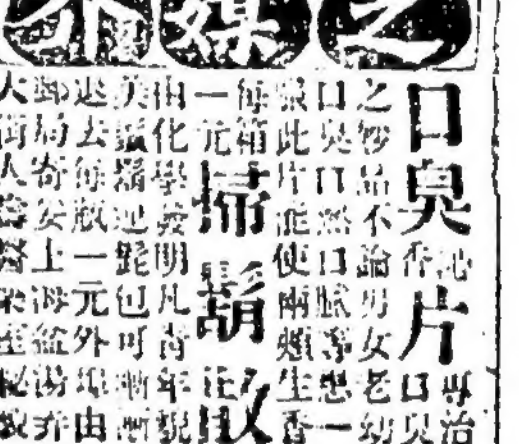 之媒介
口臭片
沁香
專治口臭
之妙品不論男女老幼
口臭口燥口膩等惡一
張此片能使兩頰生香
每箱一元
掃鬍散
由化學發明凡青年貌
美鬚鬍包可漸漸
退去每瓶一元外埠由
郵局寄安上海盆湯弄
大街人壽醫